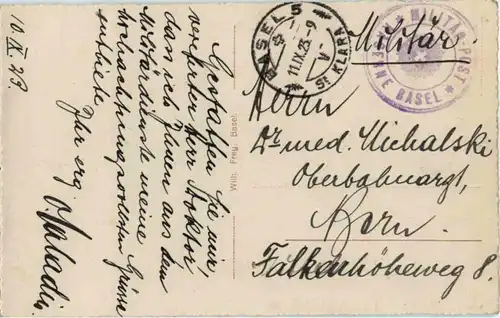 10.IX.23.
Gestatten Sie mir,
verehrter Herr Doktor
dass ich Ihnen aus dem
Militärdienste meine
hochachtungsvollsten Grüsse
entbiete.
Ihr erg.
Wilh. Frey, Basel.
BASEL 5
11.IX.23.-9
V
St KLARA
Militär.
MILITÄR-POST
BASEL
Herrn
Dr med. Michalski
Oberbahnarzt,
Bern.
Falkenhöheweg 8.